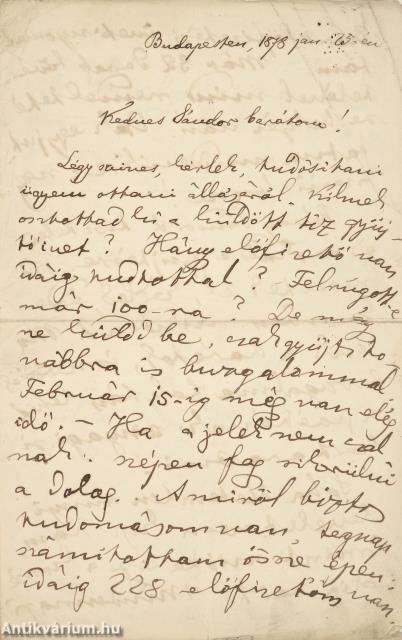 Budapesten, 1878 jan. 23-án
Kedves Sándor barátom!
Légy szives, kérlek, tudósitani
ügyem ottani állásáról. Kiknek
osztottad ki a küldött tiz gyüj-
tőivet? Hány előfizető van
idáig tudtoddal? Felrúgott-e
már 100-ra? De még
ne küldd be, csak gyüjts to-
vábbra is buzgalommal,
Február 15-ig még van elég
idő. – Ha a jelek nem csal-
nak .. szépen fog sikerülni
a dolog. Amiről biztos
tudomásom van, tegnap
számitottam össze, épen:
idáig 228 előfizetőm van.
Antikvárium.hu